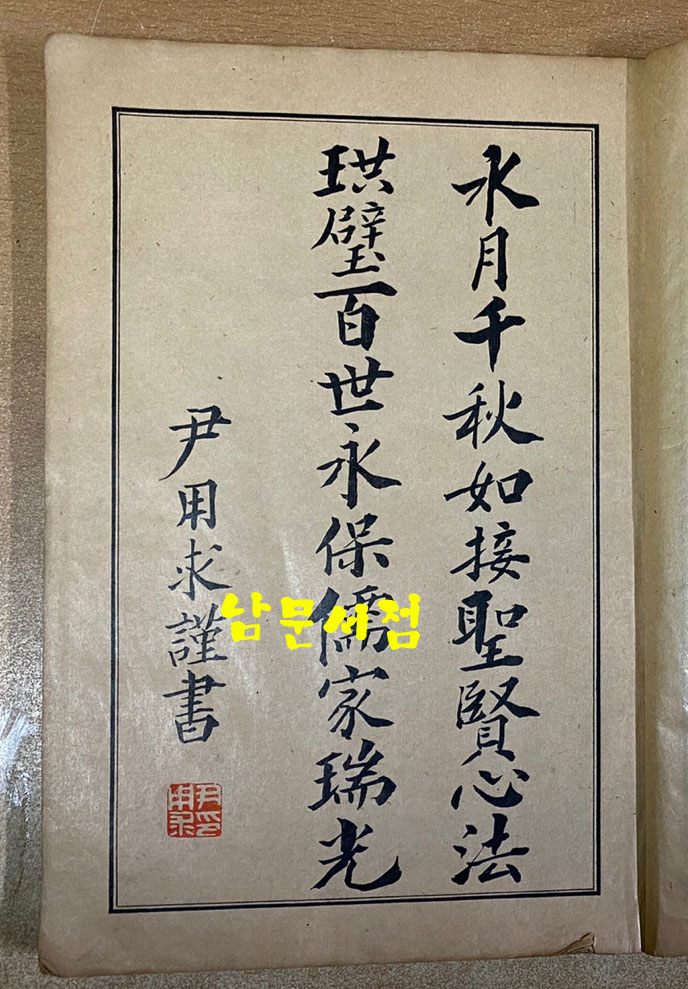 水月千秋如接聖賢心法
珙璧百世永保儒家瑞光
尹用求謹書
尹用求印
남문서점